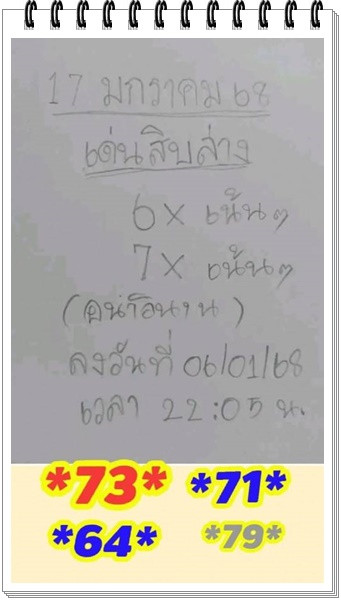 17 มกราคม 68
เด่นสิบล่าง
6 x เน้นๆ
7 x เน้นๆ
ลงวันที่ 06/01/68
เวลา 22:05 น.
*73* *71*
*64* *79*